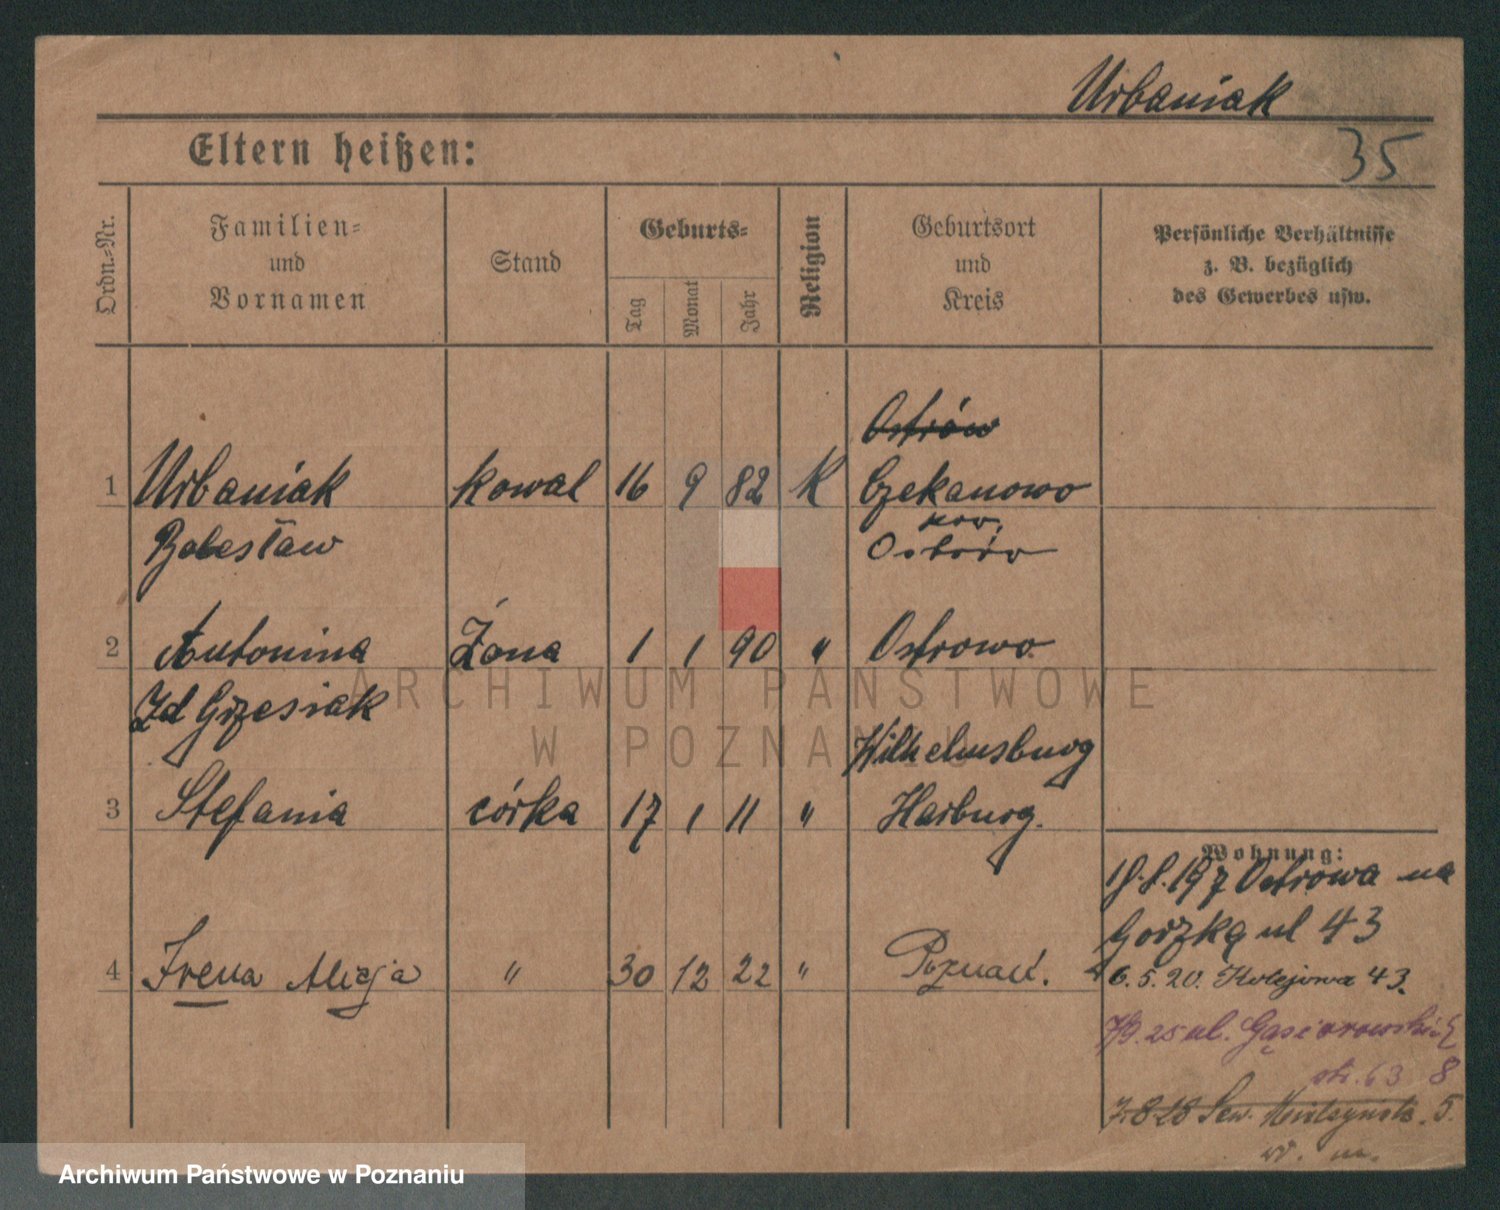 Urbaniak
Eltern heißen:
35
Ordn.-Nr.
Familien-
und
Vornamen
Stand
Geburts-
Tag
Monat
Jahr
Religion
Geburtsort
und
Kreis
Persönliche Verhältnisse
z. B. bezüglich
des Gewerbes usw.
Ostrów
1 Urbaniak kowal 16 9 82 K Czekanowo
pow.
Bolesław Ostrów
2 Antonina Żona 1 1 90 " Ostrowo
Zd Grzesiak
Wilhelmsburg
3 Stefania córka 17 1 11 " Harburg.
Wohnung:
Ostrowa na
ul 43
4 Irena Alicja " 30 12 22 " Poznań.
6.5.20. Kolejowa 43.
25 ul. Gąsiorowskich
63 8
7.8.28 Sew. Mielżyńsk. 5.
ARCHIWUM PAŃSTWOWE
W POZNANIU
Archiwum Państwowe w Poznaniu